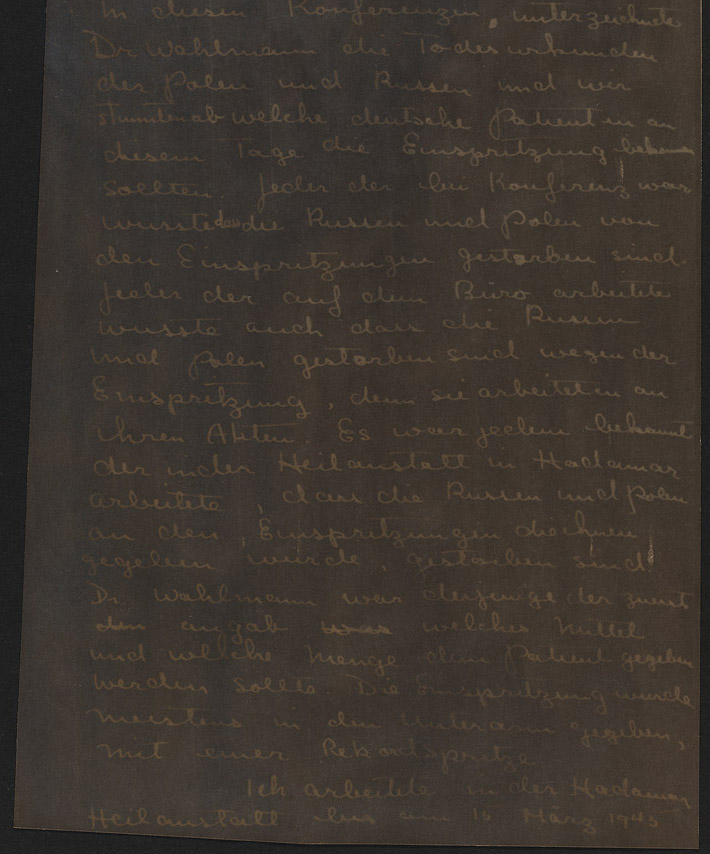 In diesen Konferenzen, unterzeichnete
Dr. Wahlmann die Todesurkunden
der Polen und Russen und wir
stimmten ab welche deutsche Patienten an
diesem Tage die Einspritzung bekommen
sollten. Jeder der bei Konferenz war
wusste dass die Russen und Polen von
den Einspritzungen gestorben sind.
Jeder der auf dem Büro arbeitete
wusste auch dass die Russen
und Polen gestorben sind wegen der
Einspritzung, denn sie arbeiteten an
ihren Akten. Es war jedem bekannt
der in der Heilanstalt in Hadamar
arbeitete, dass die Russen und Polen
an den Einspritzungen die ihnen
gegeben wurde, gestorben sind.
Dr. Wahlmann war derjenige der zuerst
angab welches Mittel
und welche Menge dem Patient gegeben
werden sollte. Die Einspritzung wurde
meistens in den Unterarm gegeben,
mit einer Rekordspritze.
Ich arbeitete in der Hadamar
Heilanstalt bis am März 1945